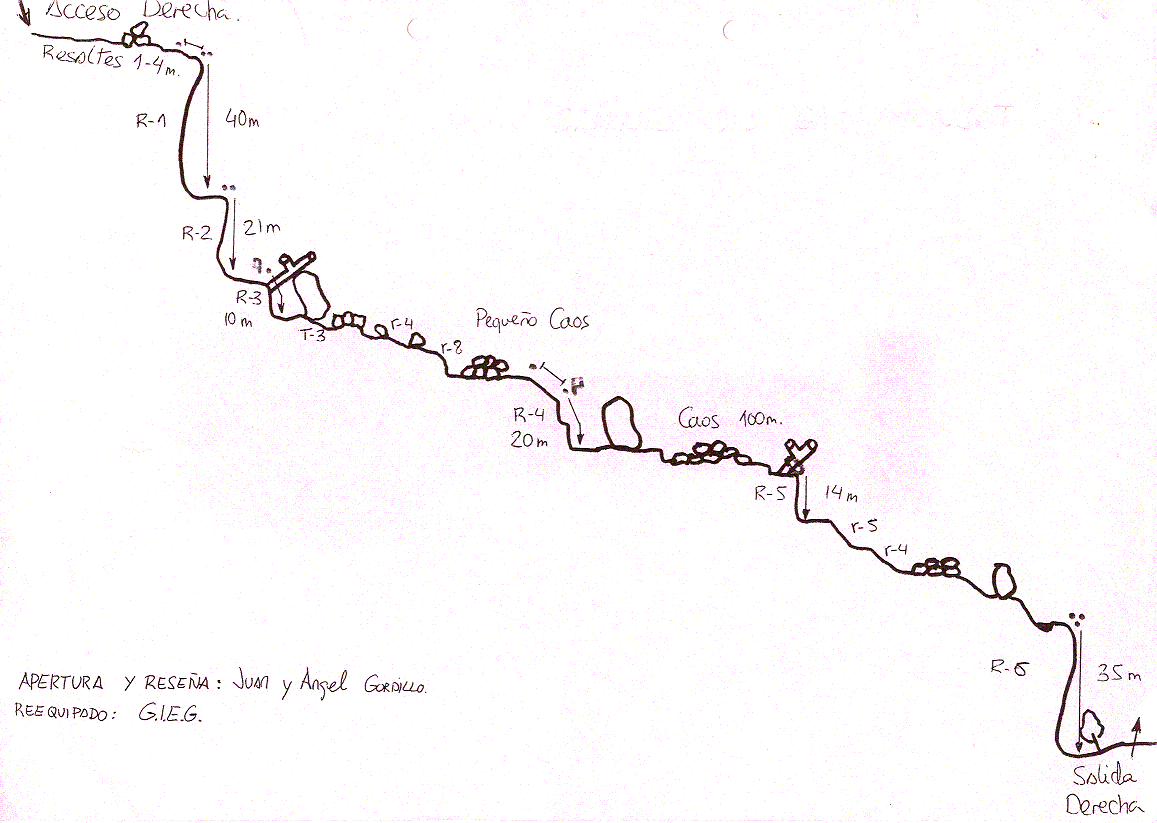 Acceso Derecha.
Resaltes 1-4m.
R-1
40m
R-2
21m
R-3
10 m
T-3
r-4
r-8
Pequeño Caos
R-4
20m
Caos 100m.
R-5
14m
r-5
r-4
R-6
35m
Salida
Derecha
APERTURA Y RESEÑA: JUAN y Angel GORDILLO.
REEQUIPADO: G.I.E.G.